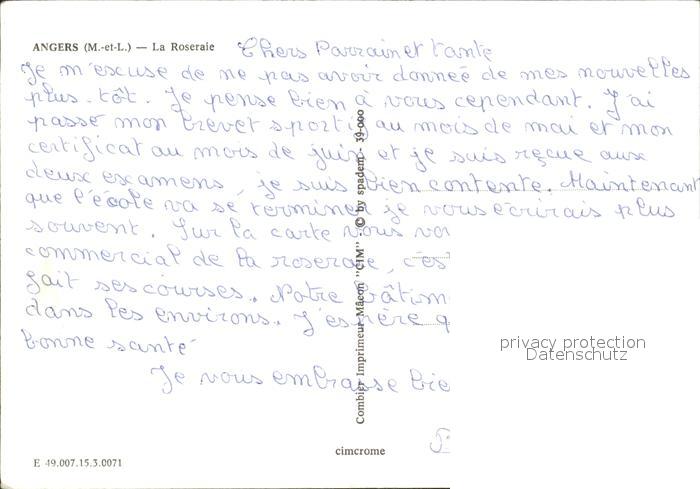 ANGERS (M.-et-L.) — La Roseraie
Chers Parrain et tante
Je m'excuse de ne pas avoir donneé de mes nouvelles
plus tôt. Je pense bien à vous cependant. J'ai
passé mon brevet sportif au mois de mai et mon
certificat au mois de juin et je suis reçue aux
deux examens, je suis bien contente. Maintenant
que l'école va se terminer je vous écrirais plus
souvent. Sur la carte vous
commercial de la roseraie, c'es
fait ses courses. Notre bâtim
dans les environs. J'espère q
bonne santé
Je vous embrasse bie
Combier Imprimeur Mâcon "CIM" - © by spadem - 39-000
privacy protection
Datenschutz
cimcrome
E 49.007.15.3.0071